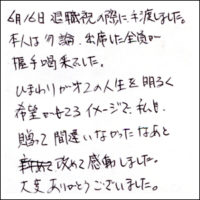 6月16日 退職祝の際に、手渡しました。
本人は勿論、出席した全員が
握手喝采でした。
ひまわりがオ2の人生を明るく
希望が もてる イメージで、私も
贈って間違いなかったなあと
改めて感動しました。
大変ありがとうございました。